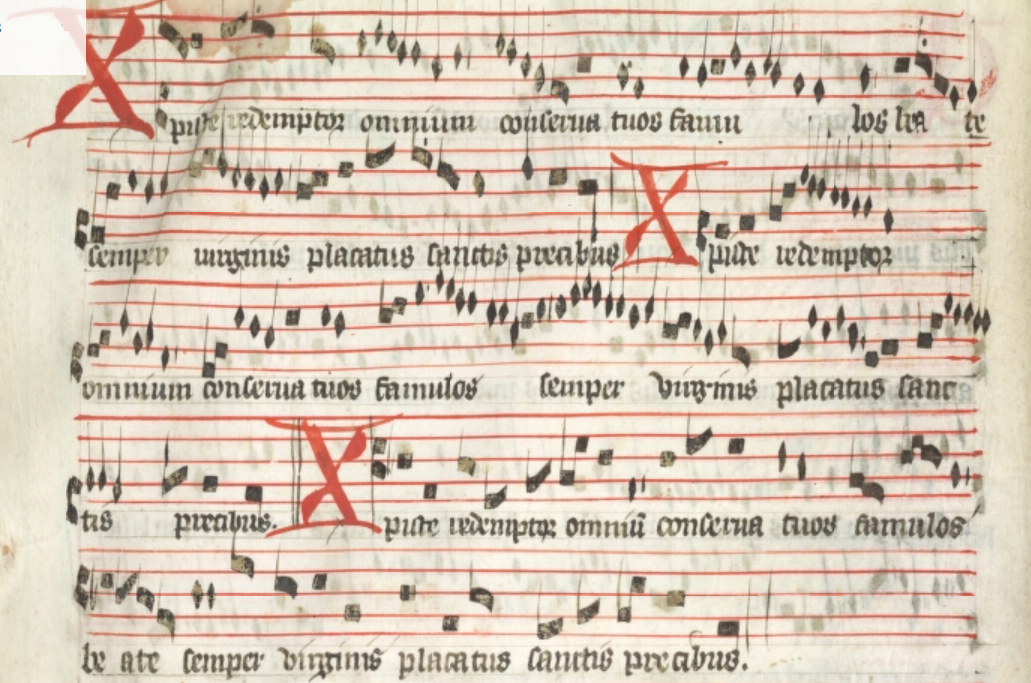 Xpiste redemptor omnium conserua tuos famu los bea te
semper uirginis placatus sanctis precibus Xpiste redemptor
omnium conserua tuos famulos semper virginis placatus sanc
tis precibus. Xpiste redemptor omniū conserua tuos famulos
be ate semper virginis placatus sanctis precibus.